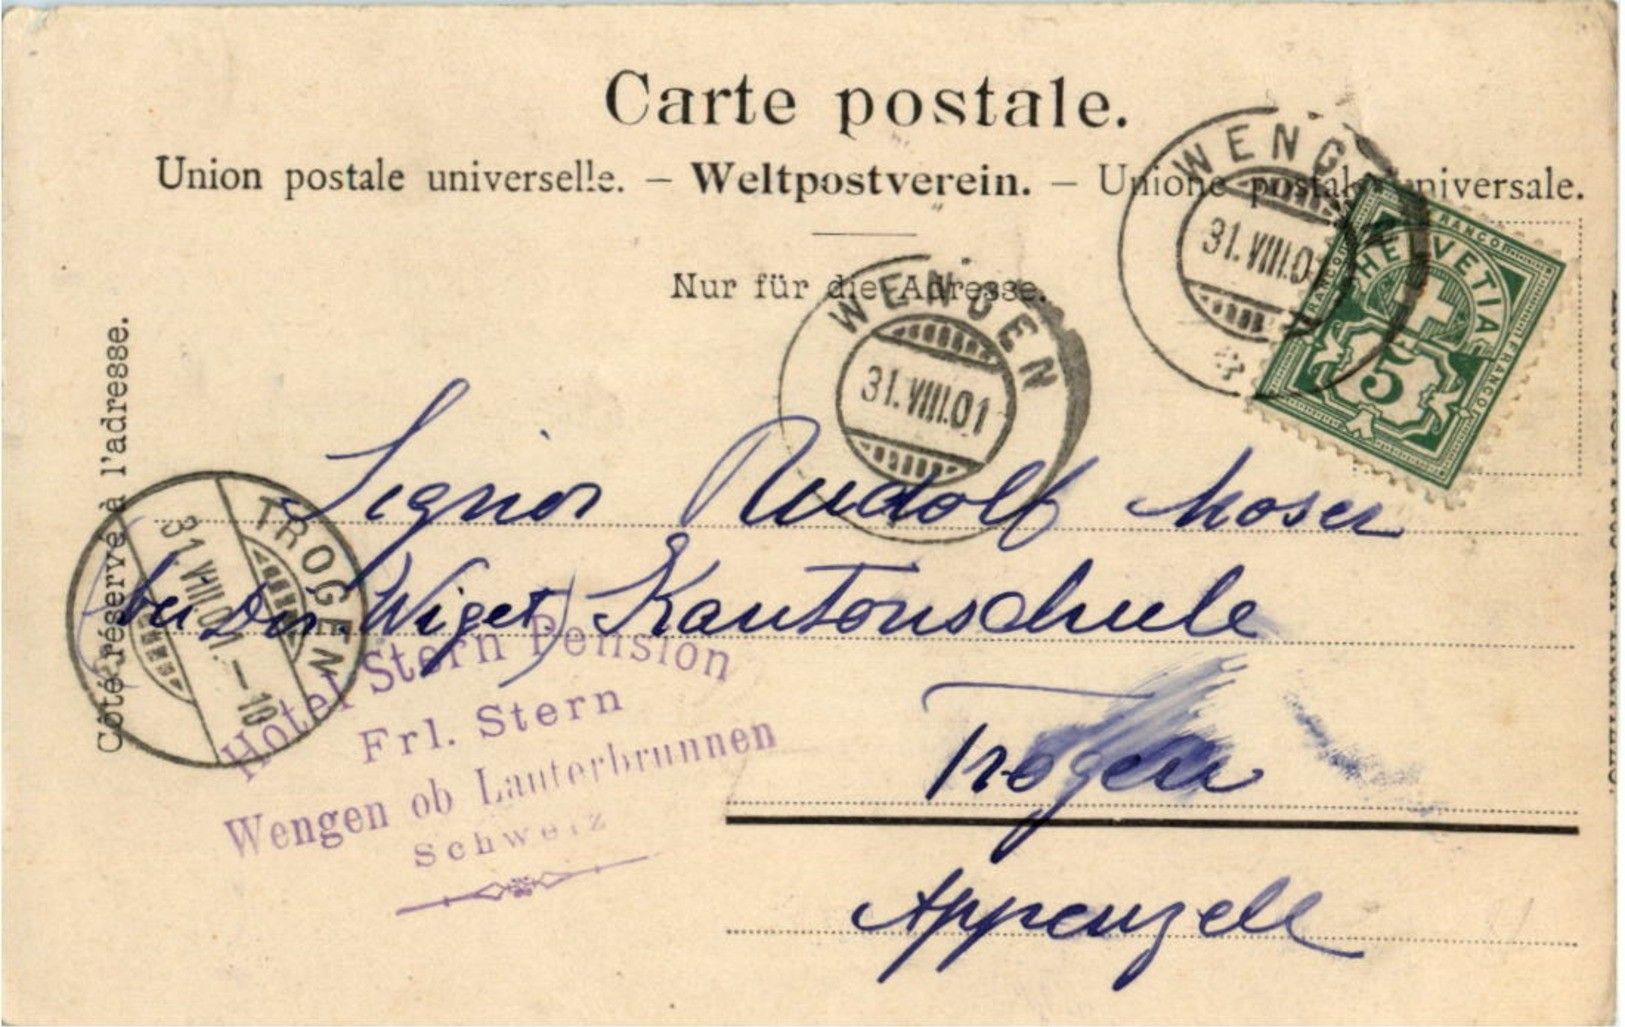 Carte postale.
Union postale universelle. – Weltpostverein. – Unione postale universale.
Nur für die Adresse.
Côté réservé à l'adresse.
WENGEN
31.VIII.01
WENGEN
31.VIII.01
FRANCO
HELVETIA
FRANCO
FRANCO
5
TROGEN
31.VIII.01.–10
Signor Rudolf Moser
(bei Dir. Wiget) Kantonschule
Trogen
Appenzell
Hotel Stern Pension
Frl. Stern
Wengen ob Lauterbrunnen
Schweiz